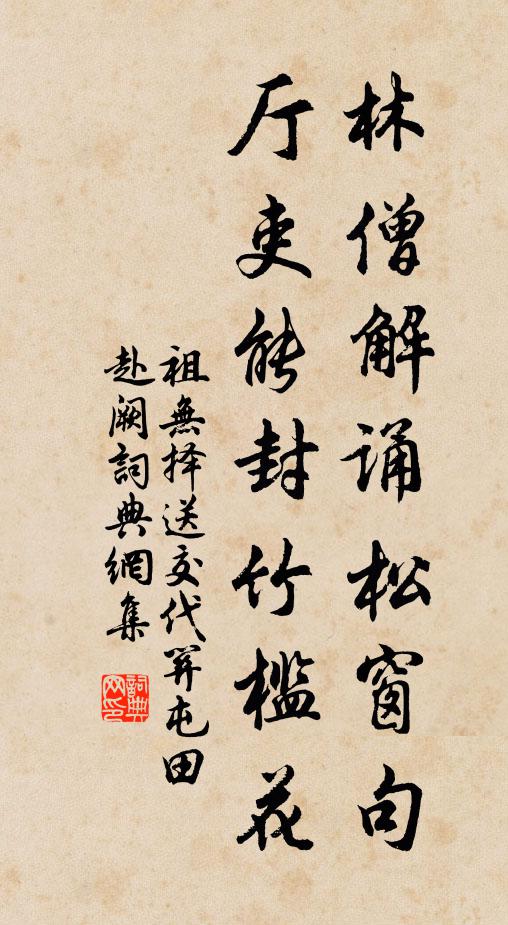 林僧解诵松窗句
厅吏能封竹槛花
祖無择送交代筭屯田
赴阙詞典網集
詞典網印